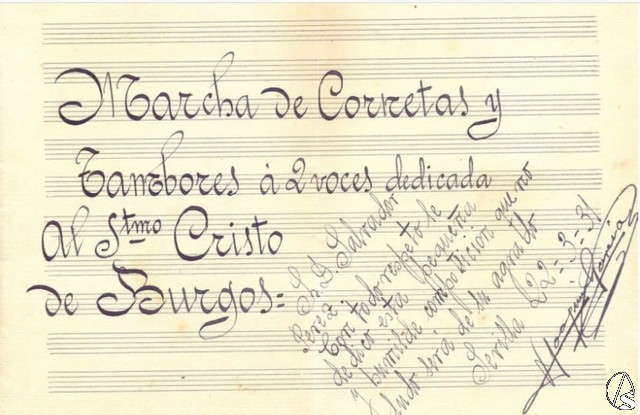 Marcha de Cornetas y
Tambores à 2 voces dedicada
Al S.tmo Cristo
de Burgos=
Sr. D. Salvador
Perez:
Con todo respeto le
dedico esta pequeña
y humilde composición que no
dudo será de su agrado
Sevilla 22-3-31